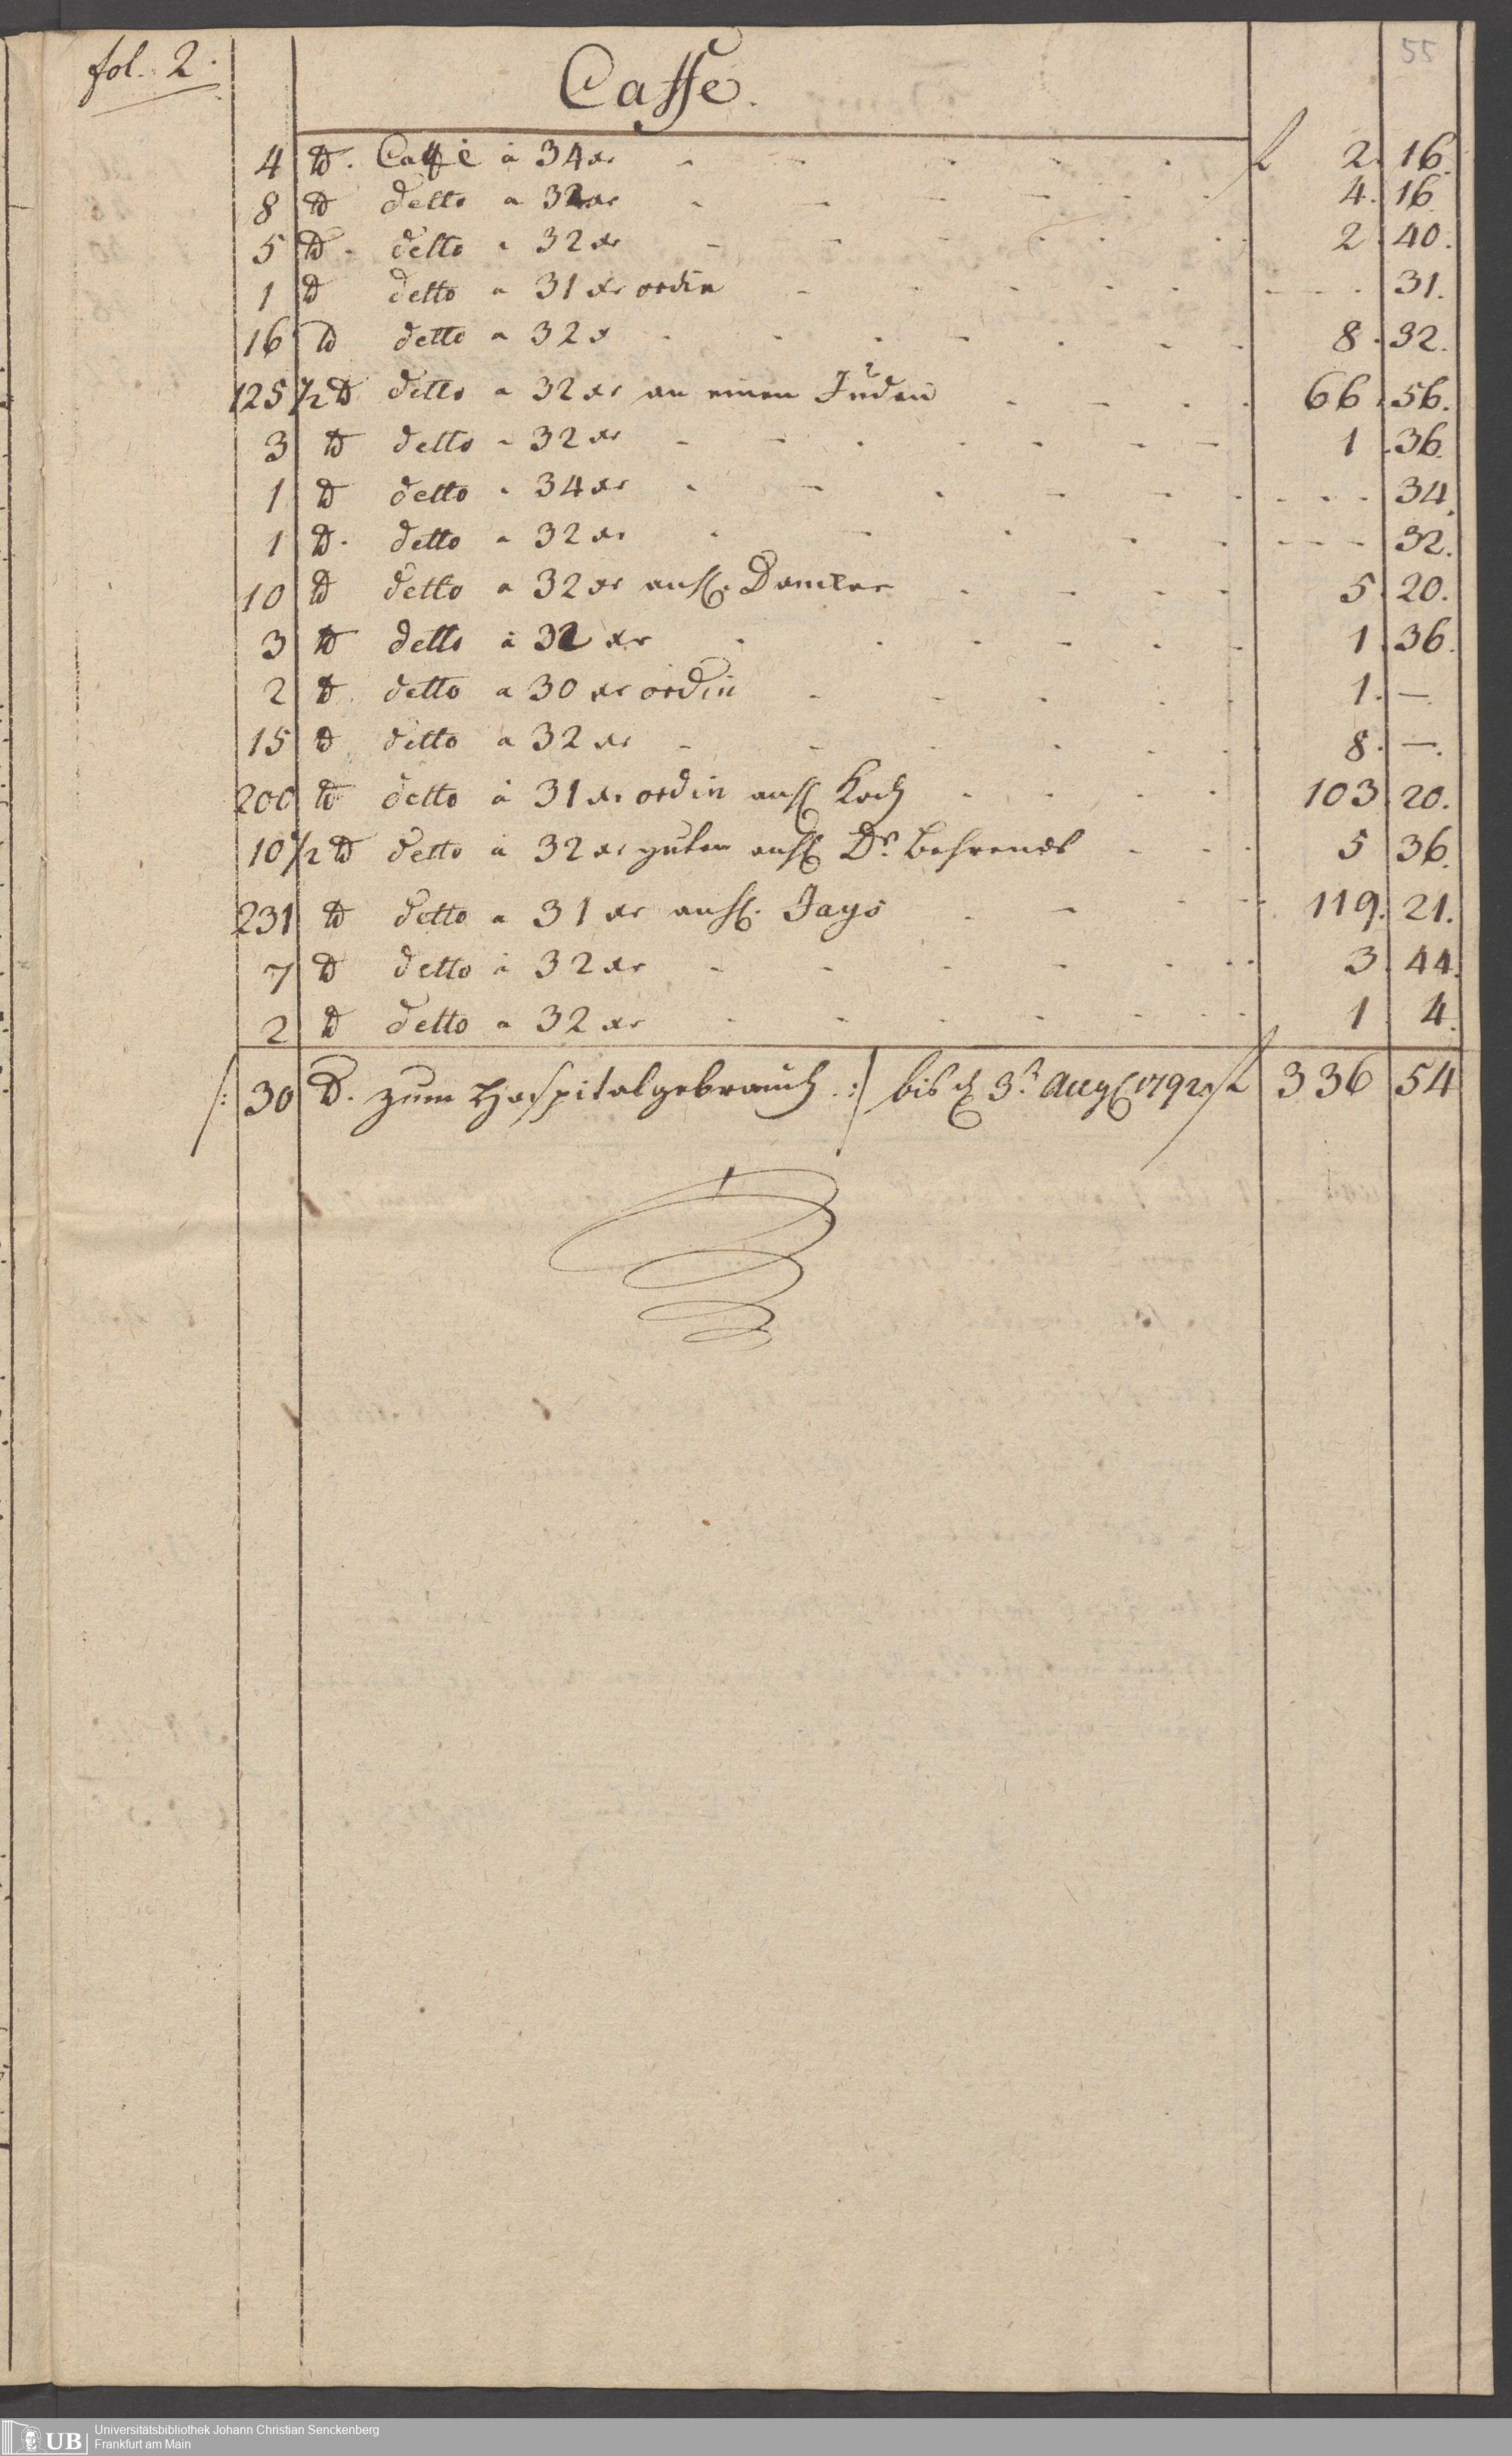 fol. 2.
55
Caffe.
4 ℔. Caffé à 34 xr - - - - - - - f 2. 16.
8 ℔ detto a 32 xr - - - - - - 4. 16
5 ℔. detto a 32 xr - - - - - - 2. 40.
1 ℔ detto a 31 xr ordin - - - - - - - - - 31.
16 ℔ detto a 32 x - - - - - - - 8. 32.
125 1/2 ℔ detto a 32 xr an einen Juden - - - - 66. 56.
3 ℔ detto a 32 xr - - - - - - - 1. 36.
1 ℔ detto a 34 xr - - - - - - - - - 34.
1 ℔. detto a 32 xr - - - - - - - - 32.
10 ℔ detto a 32 xr an H. - - - - 5. 20.
3 ℔ detto à 32 xr - - - - - - 1. 36.
2 ℔ detto a 30 xr ordin - - - - - 1. —
15 ℔ detto a 32 xr - - - - - - - 8. —.
200 ℔ detto à 31 xr ordin an H Koch - - - - 103. 20.
10 1/2 ℔ detto à 32 xr guten an H Dr. Behrends - - - 5 36.
231 ℔ detto a 31 xr an H. Jays - - - - 119. 21.
7 ℔ detto à 32 xr - - - - - - - 3. 44.
2 ℔ detto a 32 xr - - - - - - - 1 4.
/: 30 ℔. zum Hospitalgebrauch :/ bis d 3t. Aug 1792. f 336 54
UB Universitätsbibliothek Johann Christian Senckenberg
Frankfurt am Main